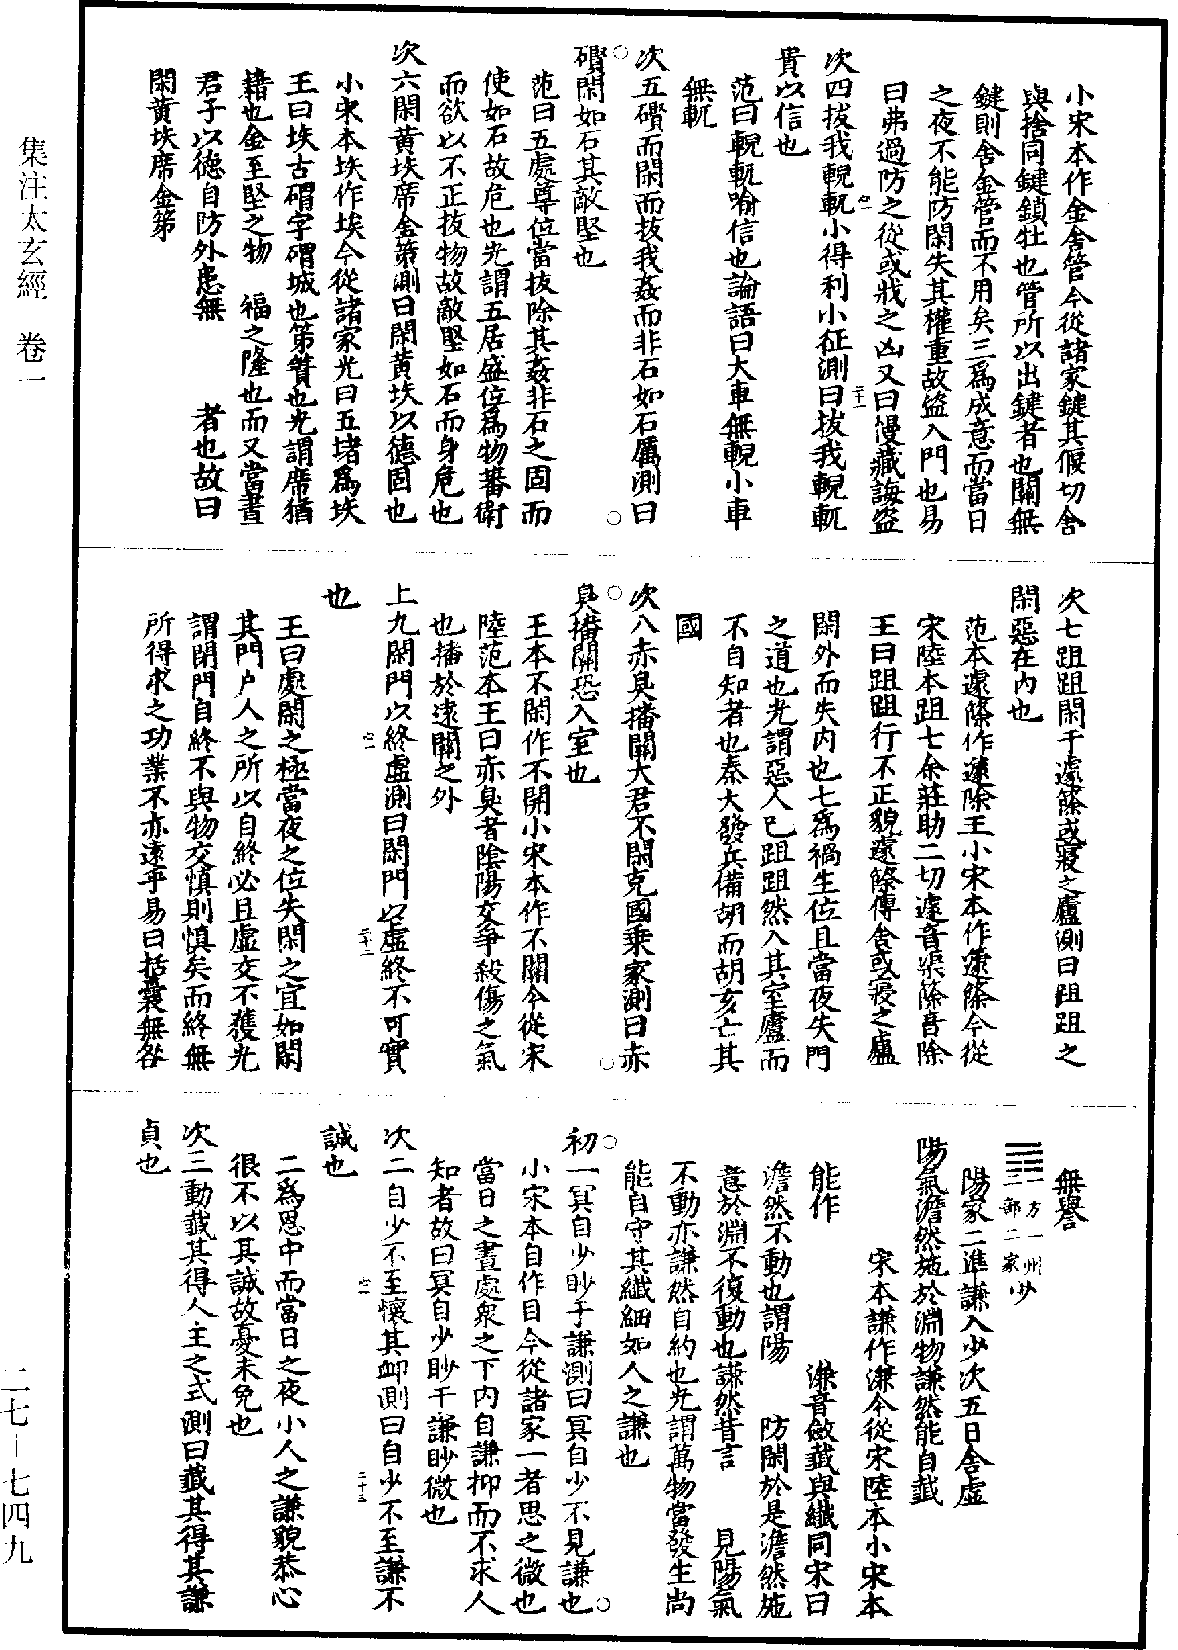 小宋本作金舍管今從諸家鍵其偃切舍
與捨同鍵鎖牡也管所以出鍵者也關無
鍵則舍金管而不用矣三爲成意而當日
之夜不能防閑失其權重故盜入門也易
曰弗過防之從或戕之凶又曰慢藏誨盜
次四拔我輗軏小得利小征測曰拔我輗軏
貴以信也
范曰輗軏喻信也論語曰大車無輗小車
無軏
次五磿而閑而拔我姦而非石如石厲測曰
磿閑如石其敵堅也
范曰五處尊位當拔除其姦非石之固而
使如石故危也光謂五居盛位爲物蕃衛
而欲以不正拔物故敵堅如石而身危也
次六閑黃垁席金笫測曰閑黃垁以德固也
小宋本垁作埃今從諸家光曰五堵爲垁
王曰垁古 字謂城也笫簀也光謂席猶
藉也金至堅之物 福之隆也而又當晝
君子以德自防外患無 者也故曰
閑黃垁席金笫
次七跙跙閑于遽篨或寢之廬測曰跙跙之
閑惡在內也
范本遽篨作蘧除王小宋本作蘧篨今從
宋陸本跙七余莊助二切遽音渠篨音除
王曰跙跙行不正貌遽篨傳舍或寢之廬
閑外而失內也七爲禍生位且當夜失門
之道也光謂惡人已跙跙然入其室廬而
不自知者也秦大發兵備胡而胡亥亡其
國
次八赤臭播關大君不閑克國乘家測曰赤
臭播關恐入室也
王本不閑作不開小宋本作不關今從宋
陸范本王曰赤臭者陰陽交爭殺傷之氣
也播於遠關之外
上九閑門以終虛測曰閑門以虛終不可實
也
王曰處閑之極當夜之位失閑之宜如閑
其門戶人之所以自終必且虛交不獲光
謂閉門自終不與物交慎則慎矣而終無
所得求之功業不亦遠乎易曰括囊無咎
無譽
一方一州
二部二家 少
陽家二準謙入少次五日舍虛
陽氣澹然施於淵物謙然能自韱
宋本謙作溓今從宋陸本小宋本
能作 溓音斂韱與纖同宋曰
澹然不動也謂陽 防閑於是澹然施
意於淵不復動也謙然昔言 見陽氣
不動亦謙然自約也光謂萬物當發生尚
能自守其纖細如人之謙也
初一冥自少眇于謙測曰冥自少不見謙也
小宋本自作目今從諸家一者思之微也
當日之晝處泉之下內自謙抑而不求人
知者故曰冥自少眇于謙眇微也
次二自少不至懷其卹測曰自少不至謙不
誠也
二爲思中而當日之夜小人之謙貌恭心
很不以其誠故憂未免也
次三動韱其得人主之式測曰韱其得其謙
貞也
集注太玄經 卷一
二七—七四九